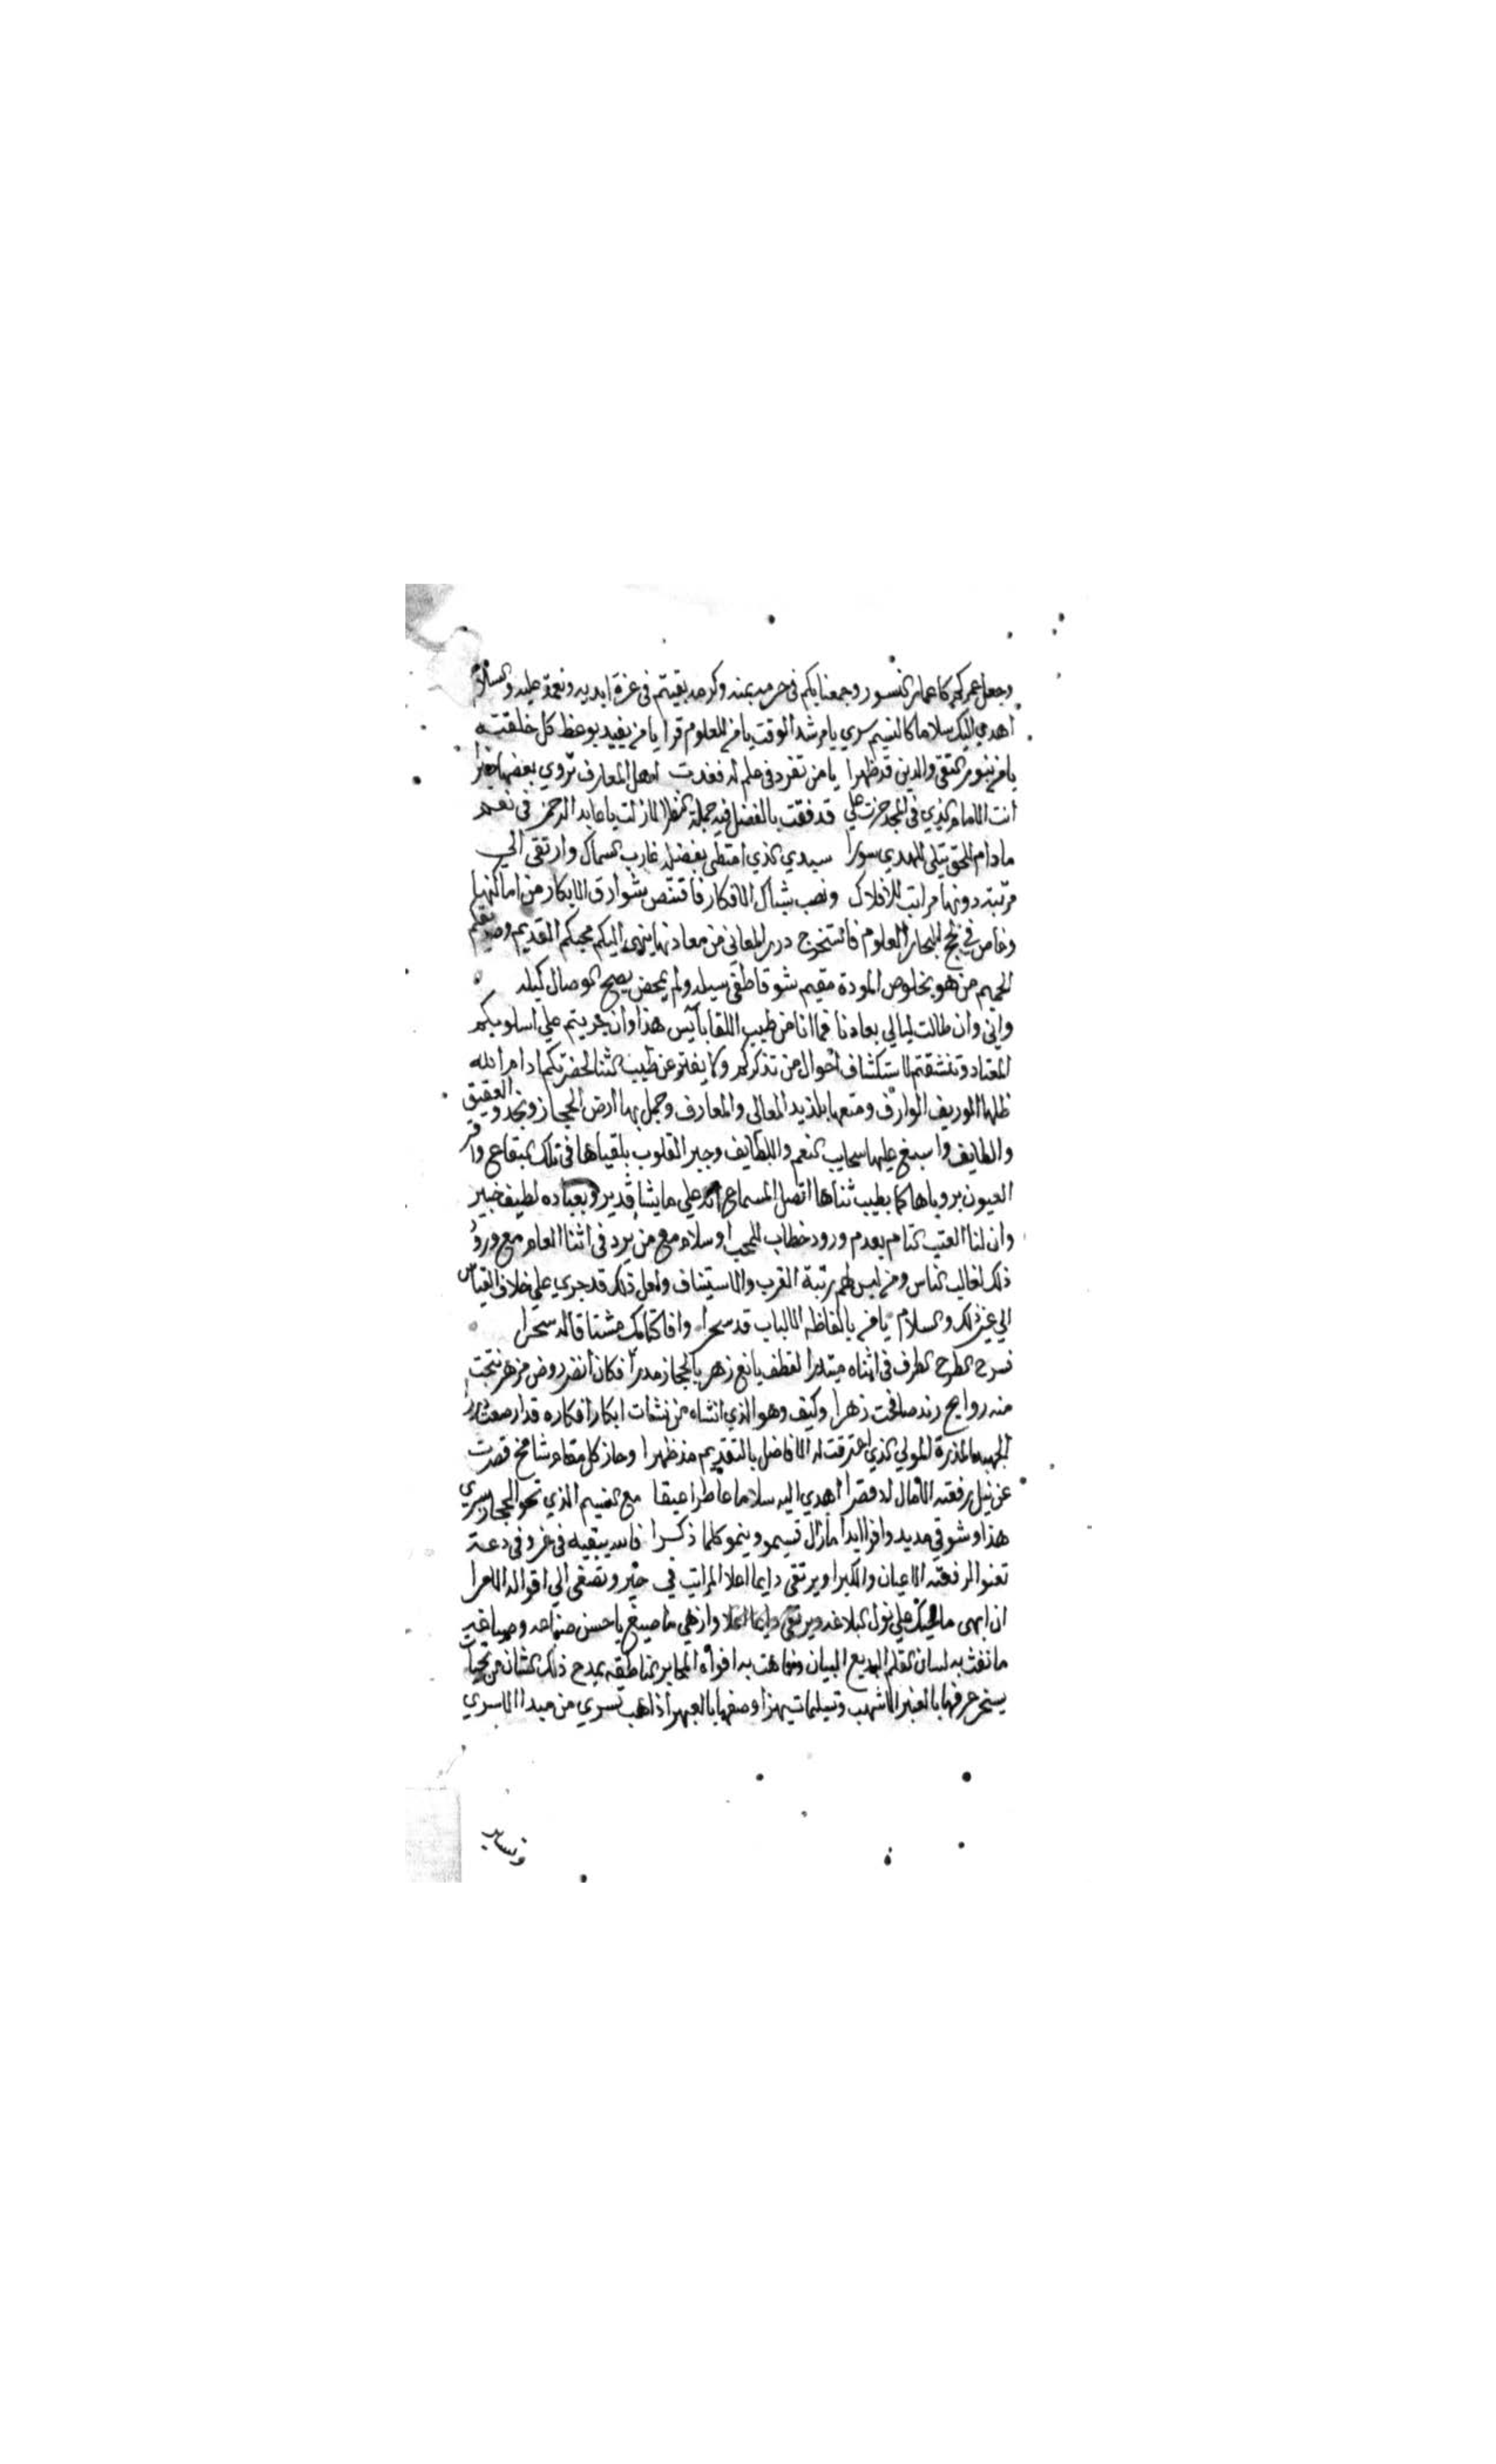 وجعل عمركم كاعمار النسور وجمعنا بكم في حرمه بمنه وكرمه بقيتم في عزة ابديه ونعمة عليه والسلام
أهدي اليك سلاما كالنسيم سري يا مرشد الوقت يا من للعلوم قرا يا من يفيد بوعظ كل خلقته
يا من بنور التقي والدين قد ظهرا يا من تفرد في علم له فغدت اهل المعارف تروي بعضها خبرا
أنت الامام الذي في المجد حزت علي قد فقت بالفضل فيه جملة لازلت يا عابد الرحمن في نعم
مادام للحق تتلي للهدي سورا سيدي الذي امتطى بفضله غارب السماك وارتقى الي
مرتبة دونها مراتب الافلاك ونصب شباك الافكار فاقتنص شوارق الابكار من اماكنها
وغاص في لجج بحار العلوم فاستخرج درر المعاني من معادنها ينهي اليكم محبكم القديم وصديقكم
الحميم من هو بخلوص المودة مقيم شوقا طفى سيله ولم يحض يصح الوصال كيله
واني وان طالت ليالي بعادنا فما انا من طيب اللقا بآيس هذا وان جريتم علي اسلوبكم
المعتاد وتشقتم لاستكشاف أحوال من تذكركم ولا يفتر عن طيب الثنا لحضرتكم ادام الله
ظلها الوريف الوارف ومتعها بلذيد المعالى والمعارف وجمل بها ارض الحجاز ونجد والعقيق
والطايف واسبغ عليها سحايب النعم واللطايف وجبر القلوب بلقياها في تلك البقاع واقر
العيون بروياها كما بطيب ثناها اتصل المسماع انه علي ما يشا قدير وبعباده لطيف خبير
وان لنا العتب التام بعدم ورود خطاب للمحب او سلام مع من يرد في اثنا العام مع ورود
ذلك لغالب الناس ومن ليس لهم رتبة القرب والاستيناف ولعل ذلك قد جري علي خلاف القياس
الي غير ذلك والسلام يا من بالفاظه الالباب قد سحرا وافا كتابك مشتاقا له سحرا
فسرح الطرف في اثناه مبتدرا لقطف يانع زهر بالحجاز فكان انضر روض مزهر نتجت
منه روايح رند صافحت زهرا وكيف وهو الذي انشاه من نشات ابكار افكاره قد ارصعت دررا
الجهبد المولي الذي اعترفت له الافاضل بالتقديم مذ ظهرا وحاز كل مقام شامخ قصرت
عن نيل رفعته الامال له قصرا أهدي اليه سلاما عاطرا عبقا مع النسيم الذي نحو الحجاز سري
هذا وشوقي مديد وافر ابدا مازال يسمو وينمو كلما ذكرا فالله يبقيه في عز وفي دعة
تعنو لرفعته الاعيان والكبرا ويرتقي دايما اعلا المراتب في خير وتصغى الي اقواله الامرا
ان ابهى ما حيك علي نول البلاغه وازهي ما صيغ باحسن صناعه وصياغه
ما نفث به لسان القلم البديع البيان وفاهت به افواه المحابر الناطقه بمدح ذلك الشان من تحيات
يسخر عرفها بالعنبر الاشهب وتسليمات يهزا وصفها بالعبهر اذا هب تسري من مبدا الاسري